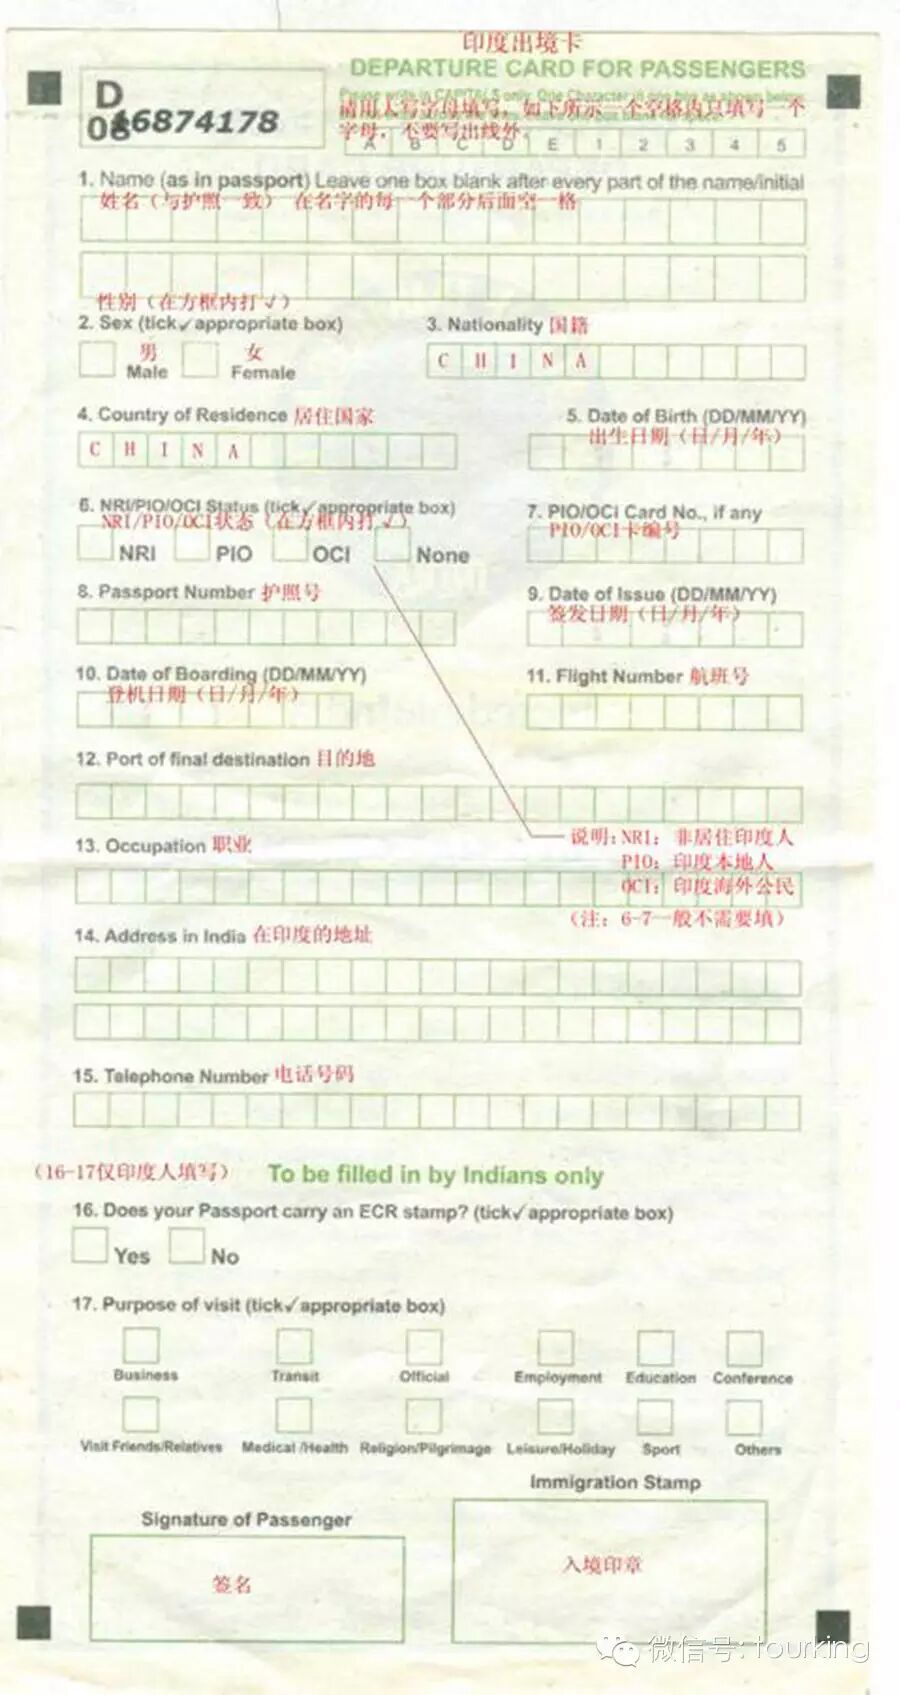 印度出境卡
DEPARTURE CARD FOR PASSENGERS
D
08
16874178
Please write in CAPITALS only. One Character in one box as shown below
请用大写字母填写，如下所示一个空格内只填写一个
字母，不要写出线外。
A B C D E 1 2 3 4 5
1. Name (as in passport) Leave one box blank after every part of the name/initial
姓名（与护照一致） 在名字的每一个部分后面空一格
性别（在方框内打✓）
2. Sex (tick✓appropriate box)
3. Nationality 国籍
男 女
Male Female
C H I N A
4. Country of Residence 居住国家
5. Date of Birth (DD/MM/YY)
出生日期（日/月/年）
C H I N A
6. NRI/PIO/OCI Status (tick✓appropriate box)
NRI/PIO/OCI状态（在方框内打✓）
7. PIO/OCI Card No., if any
PIO/OCI卡编号
NRI PIO OCI None
8. Passport Number 护照号
9. Date of Issue (DD/MM/YY)
签发日期（日/月/年）
10. Date of Boarding (DD/MM/YY)
登机日期（日/月/年）
11. Flight Number 航班号
12. Port of final destination 目的地
13. Occupation 职业
说明：NRI： 非居住印度人
PIO： 印度本地人
OCI： 印度海外公民
（注：6-7一般不需要填）
14. Address in India 在印度的地址
15. Telephone Number 电话号码
（16-17仅印度人填写） To be filled in by Indians only
16. Does your Passport carry an ECR stamp? (tick✓appropriate box)
Yes No
17. Purpose of visit (tick✓appropriate box)
Business Transit Official Employment Education Conference
Visit Friends/Relatives Medical /Health Religion/Pilgrimage Leisure/Holiday Sport Others
Immigration Stamp
Signature of Passenger
签名
入境印章
微信号: tourking